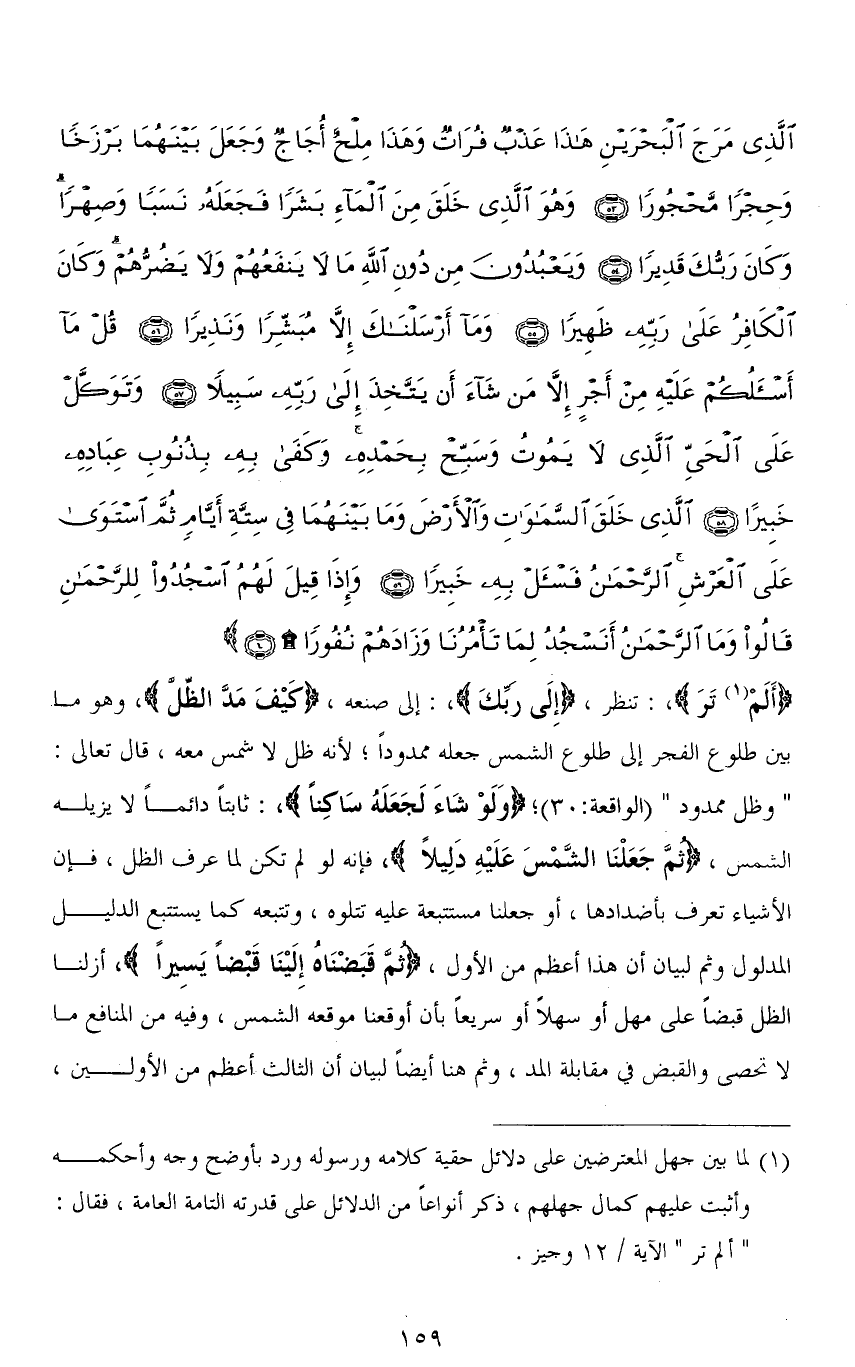 ٱلَّذِى مَرَجَ ٱلْبَحْرَيْنِ هَٰذَا عَذْبٌ فُرَاتٌ وَهَٰذَا مِلْحٌ أُجَاجٌ وَجَعَلَ بَيْنَهُمَا بَرْزَخًا
وَحِجْرًا مَّحْجُورًا ۝٥٣ وَهُوَ ٱلَّذِى خَلَقَ مِنَ ٱلْمَآءِ بَشَرًا فَجَعَلَهُۥ نَسَبًا وَصِهْرًاۗ
وَكَانَ رَبُّكَ قَدِيرًا ۝٥٤ وَيَعْبُدُونَ مِن دُونِ ٱللَّهِ مَا لَا يَنفَعُهُمْ وَلَا يَضُرُّهُمْۗ وَكَانَ
ٱلْكَافِرُ عَلَىٰ رَبِّهِۦ ظَهِيرًا ۝٥٥ وَمَآ أَرْسَلْنَٰكَ إِلَّا مُبَشِّرًا وَنَذِيرًا ۝٥٦ قُلْ مَآ
أَسْـَٔلُكُمْ عَلَيْهِ مِنْ أَجْرٍ إِلَّا مَن شَآءَ أَن يَتَّخِذَ إِلَىٰ رَبِّهِۦ سَبِيلًا ۝٥٧ وَتَوَكَّلْ
عَلَى ٱلْحَىِّ ٱلَّذِى لَا يَمُوتُ وَسَبِّحْ بِحَمْدِهِۦۚ وَكَفَىٰ بِهِۦ بِذُنُوبِ عِبَادِهِۦ
خَبِيرًا ۝٥٨ ٱلَّذِى خَلَقَ ٱلسَّمَٰوَٰتِ وَٱلْأَرْضَ وَمَا بَيْنَهُمَا فِى سِتَّةِ أَيَّامٍ ثُمَّ ٱسْتَوَىٰ
عَلَى ٱلْعَرْشِۚ ٱلرَّحْمَٰنُ فَسْـَٔلْ بِهِۦ خَبِيرًا ۝٥٩ وَإِذَا قِيلَ لَهُمُ ٱسْجُدُوا۟ لِلرَّحْمَٰنِ
قَالُوا۟ وَمَا ٱلرَّحْمَٰنُ أَنَسْجُدُ لِمَا تَأْمُرُنَا وَزَادَهُمْ نُفُورًا ۩ ۝٦٠ ﴾
﴿أَلَمْ(١) تَرَ ﴾، : تنظر ، ﴿إِلَى رَبِّكَ ﴾، : إلى صنعه ، ﴿كَيْفَ مَدَّ الظِّلَّ ﴾، وهو ما
بين طلوع الفجر إلى طلوع الشمس جعله ممدوداً ؛ لأنه ظل لا شمس معه ، قال تعالى :
" وظل ممدود " (الواقعة:٣٠)؛ ﴿وَلَوْ شَاءَ لَجَعَلَهُ سَاكِناً ﴾، : ثابتاً دائمـــاً لا يزيلـــه
الشمس ، ﴿ثُمَّ جَعَلْنَا الشَّمْسَ عَلَيْهِ دَلِيلاً ﴾، فإنه لو لم تكن لما عرف الظل ، فـــإن
الأشياء تعرف بأضدادها ، أو جعلنا مستتبعة عليه تتلوه ، وتتبعه كما يستتبع الدليـــل
المدلول وثم لبيان أن هذا أعظم من الأول ، ﴿ثُمَّ قَبَضْنَاهُ إِلَيْنَا قَبْضاً يَسِيراً ﴾، أزلنـــا
الظل قبضاً على مهل أو سهلاً أو سريعاً بأن أوقعنا موقعه الشمس ، وفيه من المنافع مـا
لا تحصى والقبض في مقابلة المد ، وثم هنا أيضاً لبيان أن الثالث أعظم من الأولـــين ،
(١) لما بين جهل المعترضين على دلائل حقية كلامه ورسوله ورد بأوضح وجه وأحكمـــه
وأثبت عليهم كمال جهلهم ، ذكر أنواعاً من الدلائل على قدرته التامة العامة ، فقال :
" ألم تر " الآية / ١٢ وجيز .
١٥٩